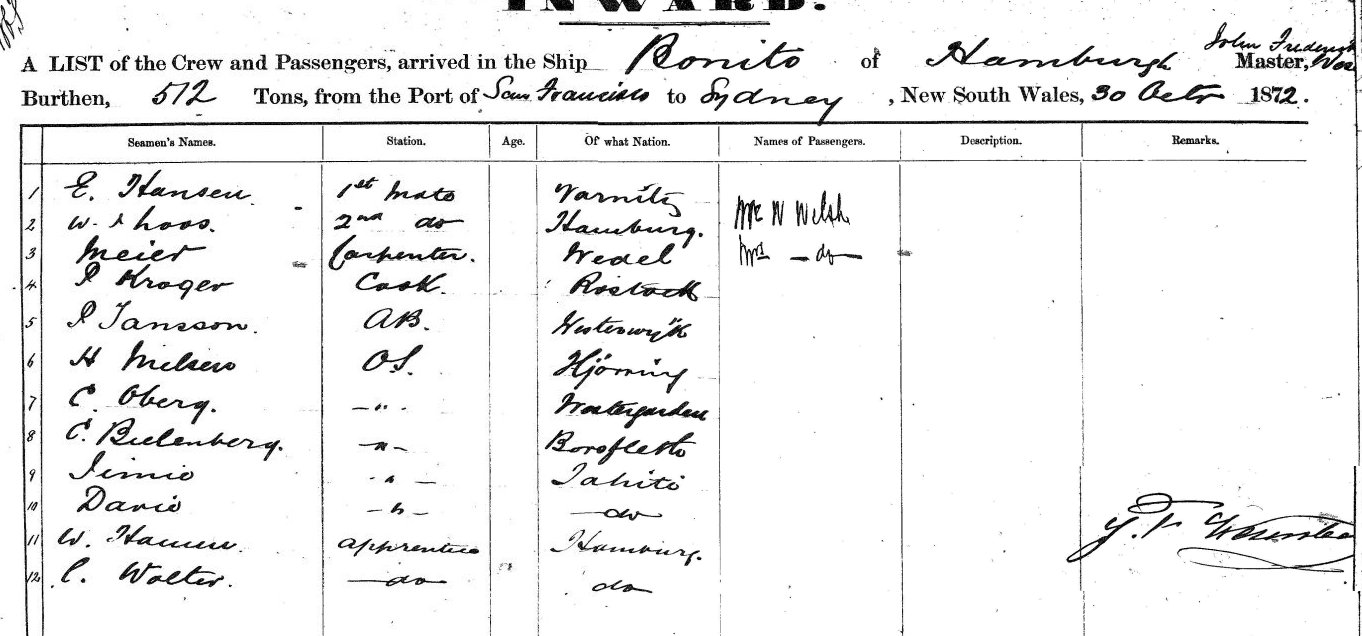 INWARD.
A LIST of the Crew and Passengers, arrived in the Ship Bonito of Hamburgh John Frederick Master,
Burthen, 512 Tons, from the Port of San Francisco to Sydney, New South Wales, 30 Octr 1872.
Seamen's Names. Station. Age. Of what Nation. Names of Passengers. Description. Remarks.
1 E. Hansen 1st Mate Varnitz
2 W. hoos. 2nd do Hamburg. Mr W Welsh
3 Meier Carpenter. Wedel Mrs — do —
4 P Kroger Cook Rostock
5 P Jansson. AB. Westerwyk
6 H Nielsen OS. Hjörring
7 C. Oberg. — " - Westergarden
8 C. Bielenberg. — " - Borsfleth
9 Jimio - " — Tahiti
10 David — " — — do —
11 W. Hamm Apprentice Hamburg.
12 C. Wolter. — do do
J. F.